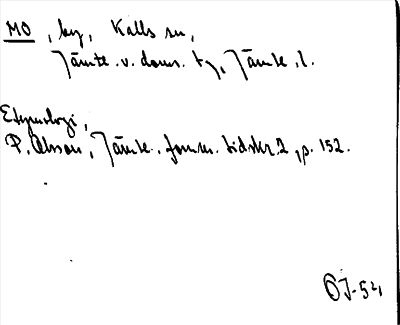 MO, by, Kalls sn,
Jämte. v. doms. tg, Jämte. l.
Etymologi,
P. Olsson, Jämte. fornm. tidskr. 2, p. 152.
ÖJ-54